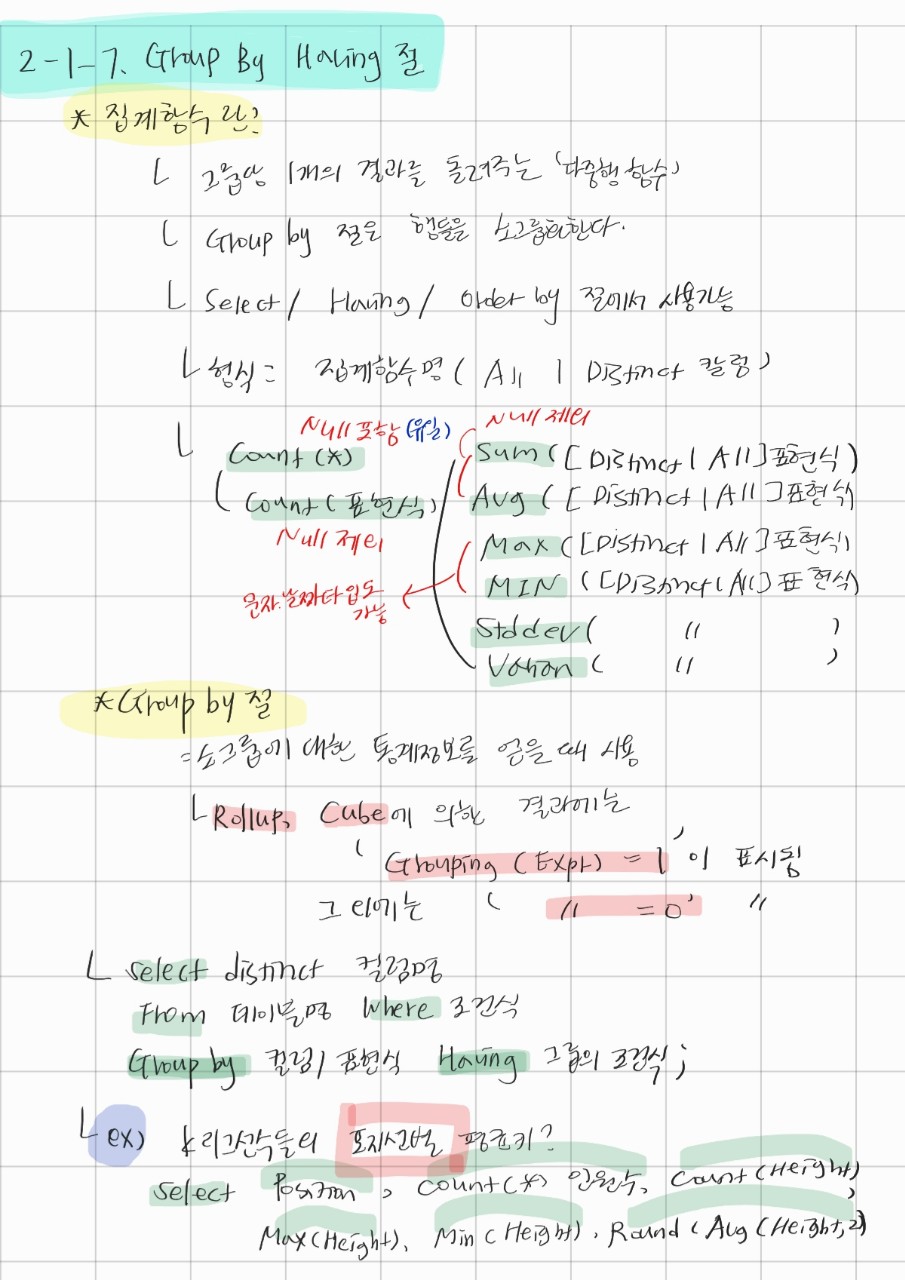 2-1-7. Group By Having 절
* 집계함수란?
└ 그룹당 1개의 결과를 돌려주는 '다중행 함수'
└ Group by 절은 행들을 소그룹화한다.
└ Select / Having / Order by 절에서 사용가능
└ 형식 = 집계함수명 ( All | Distinct 칼럼 )
Null 포함 (유일)
└ Count (*)
Count ( 표현식 )
Null 제외
Null 제외
Sum ( [ Distinct | All ] 표현식 )
Avg ( [ Distinct | All ] 표현식 )
Max ( [ Distinct | All ] 표현식 )
MIN ( [ Distinct | All ] 표현식 )
문자.날짜타입도
가능
Stddev ( 〃 )
( 〃 )
* Group by 절
= 소그룹에 대한 통계정보를 얻을 때 사용
└ Rollup, Cube에 의한 결과에는
' Grouping (Expr) = 1 ' 이 표시됨
그 외에는 ' 〃 = 0 ' 〃
└ select distinct 컬럼명
From 테이블명 Where 조건식
Group by 컬럼 / 표현식 Having 그룹의 조건식 ;
└ ex) k리그선수들의 포지션별 평균키?
select Position , count(*) 인원수, Count (Height)
, Max (Height), Min ( Height) , Round ( Avg (Height, 2)